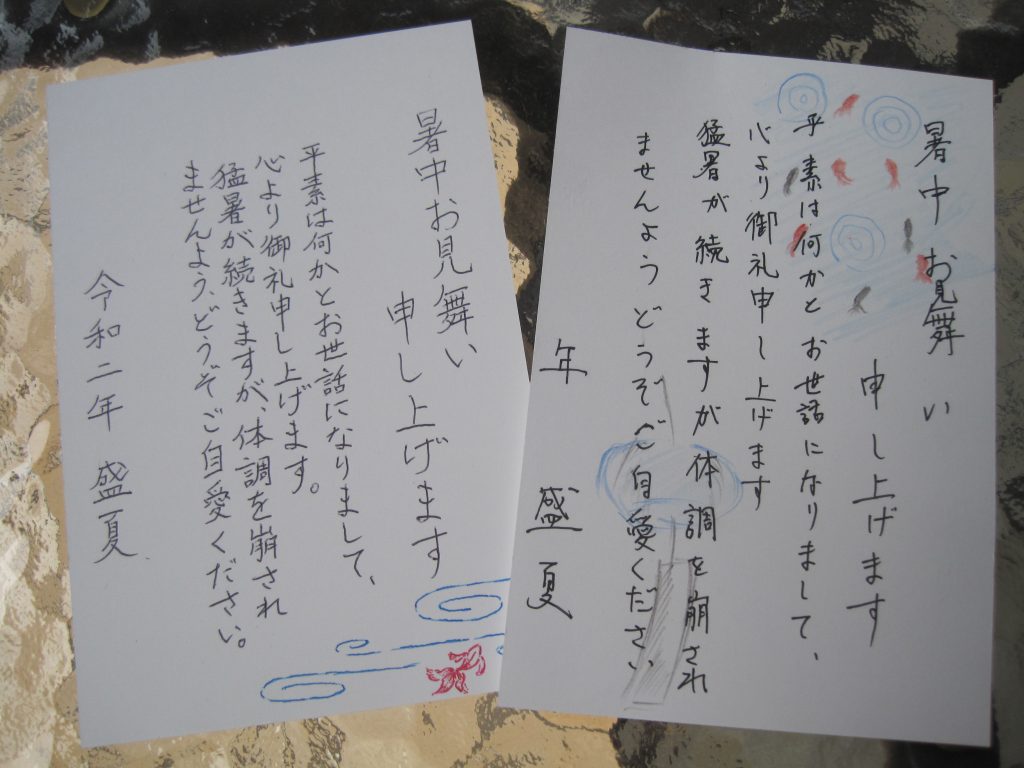 暑中お見舞い
申し上げます
平素は何かとお世話になりまして、
心より御礼申し上げます。
猛暑が続きますが、体調を崩され
ませんよう、どうぞご自愛ください。
令和二年 盛夏
暑中お見舞い
申し上げます
平素は何かとお世話になりまして、
心より御礼申し上げます
猛暑が続きますが体調を崩され
ませんようどうぞご自愛ください
年 盛夏